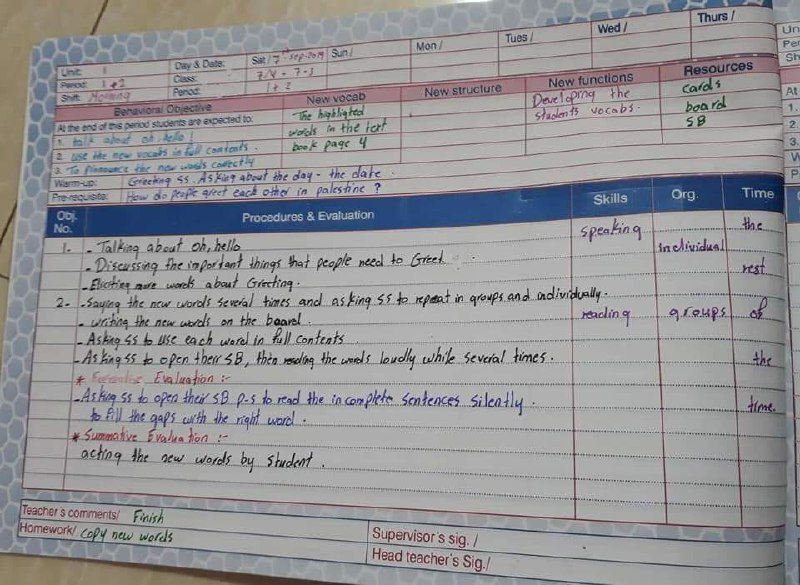 Unit: 1 Day & Date: Sat / 7th Sep-2019 Sun / Mon / Tues / Wed / Thurs /
Period: 1+2 Class: 7/4 - 7-3
Shift: Morning Period: 1+2
Behavioral Objective New vocab New structure New functions Resources
At the end of this period students are expected to: The highlighted Developing the cards
1. talk about oh, hello! words in the text students vocabs. board
2. use the new vocabs in full contents. book page 4 SB
3. To pronounce the new words correctly
Warm-up: Greeting ss. Asking about the day - the date.
Pre-requisite: How do people greet each other in palestine ?
Obj. No. Procedures & Evaluation Skills Org. Time
1- - Talking about oh, hello speaking individual the
- Discussing the important things that people need to Greet. rest
- Eliciting more words about Greeting.
2- - Saying the new words several times and asking ss to repeat in groups and individually.
- writing the new words on the board reading groups of
- Asking ss to use each word in full contents
- Asking ss to open their SB, then reading the words loudly while several times. the
* Evaluation :-
- Asking ss to open their SB P-5 to read the incomplete sentences silently. time.
to fill the gaps with the right word.
* Summative Evaluation :-
acting the new words by student.
Teacher's comments/ Finish
Homework/ copy new words
Supervisor's sig. /
Head teacher's Sig./
Un
Per
Sh
At
1.
2.
3.
W
P